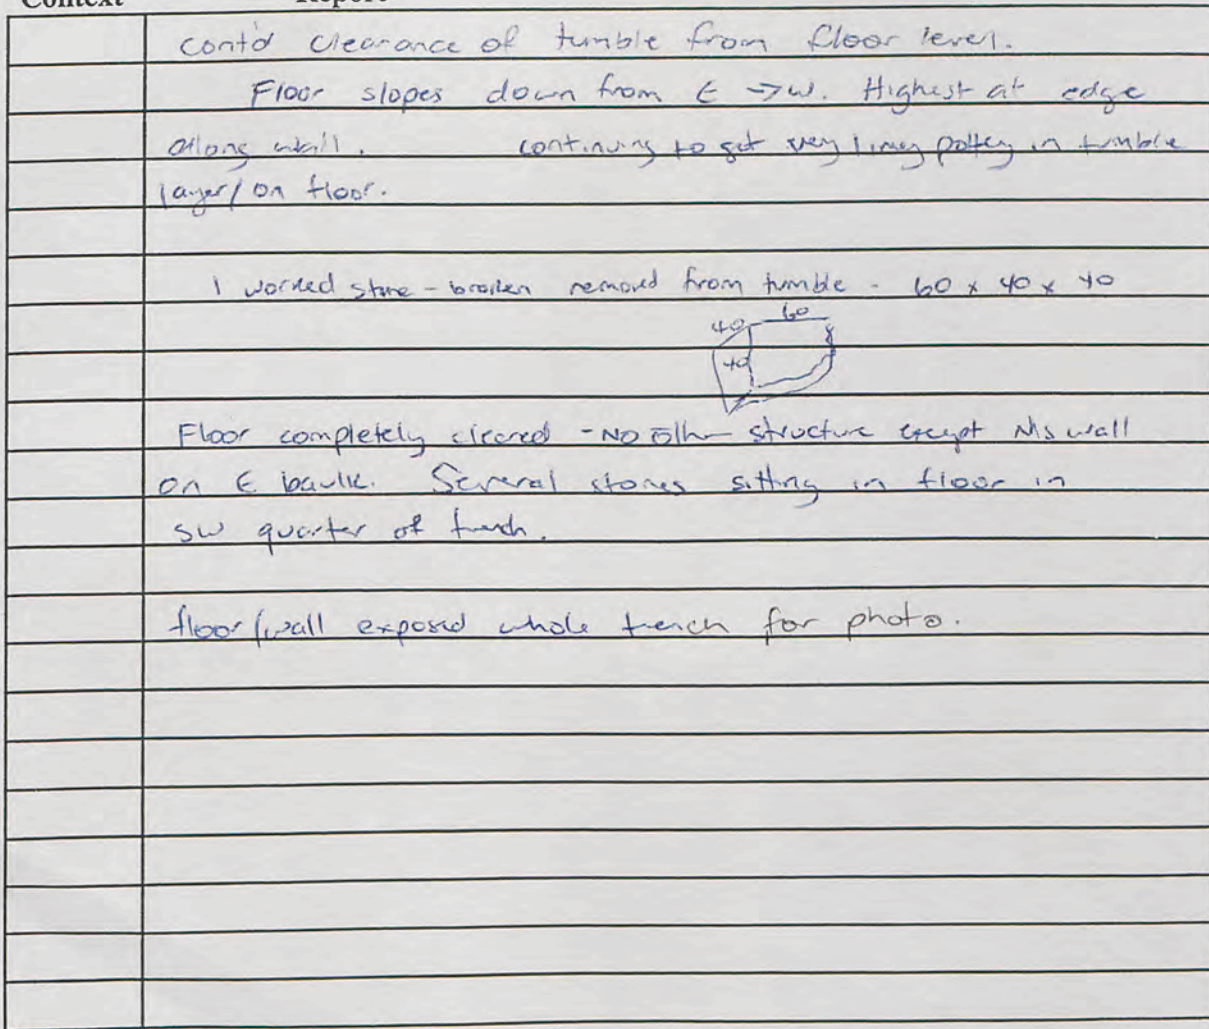 Context Report
contd clearance of tumble from floor level.
Floor slopes down from E → W. Highest at edge
along wall. continuing to get very limey pottery in tumble
layer/on floor.
1 worked stone - broken removed from tumble - 60 x 40 x 40
40 60
40
Floor completely cleared - No other structure except N/S wall
on E baulk. Several stones sitting in floor in
SW quarter of trench.
floor/wall exposed whole trench for photo.